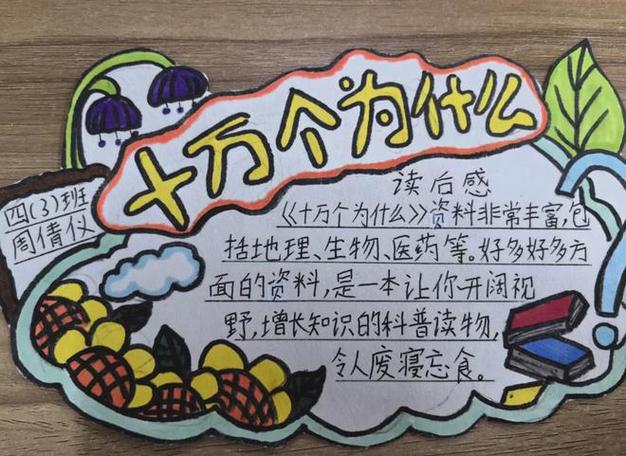 十万个为什么
四(3)班
周倩仪
读后感
《十万个为什么》资料非常丰富,包
括地理、生物、医药等。好多好多方
面的资料,是一本让你开阔视
野,增长知识的科普读物,
令人废寝忘食。